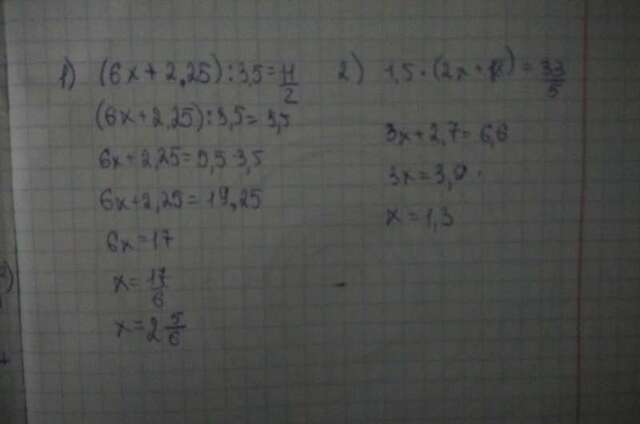 1) (6x + 2,25) : 3,5 = 11/2
(6x + 2,25) : 3,5 = 5,5
6x + 2,25 = 5,5 · 3,5
6x + 2,25 = 19,25
6x = 17
x = 17/6
x = 2 5/6
2) 1,5 · (2x + ) = 33/5
3x + 2,7 = 6,6
3x = 3,9
x = 1,3